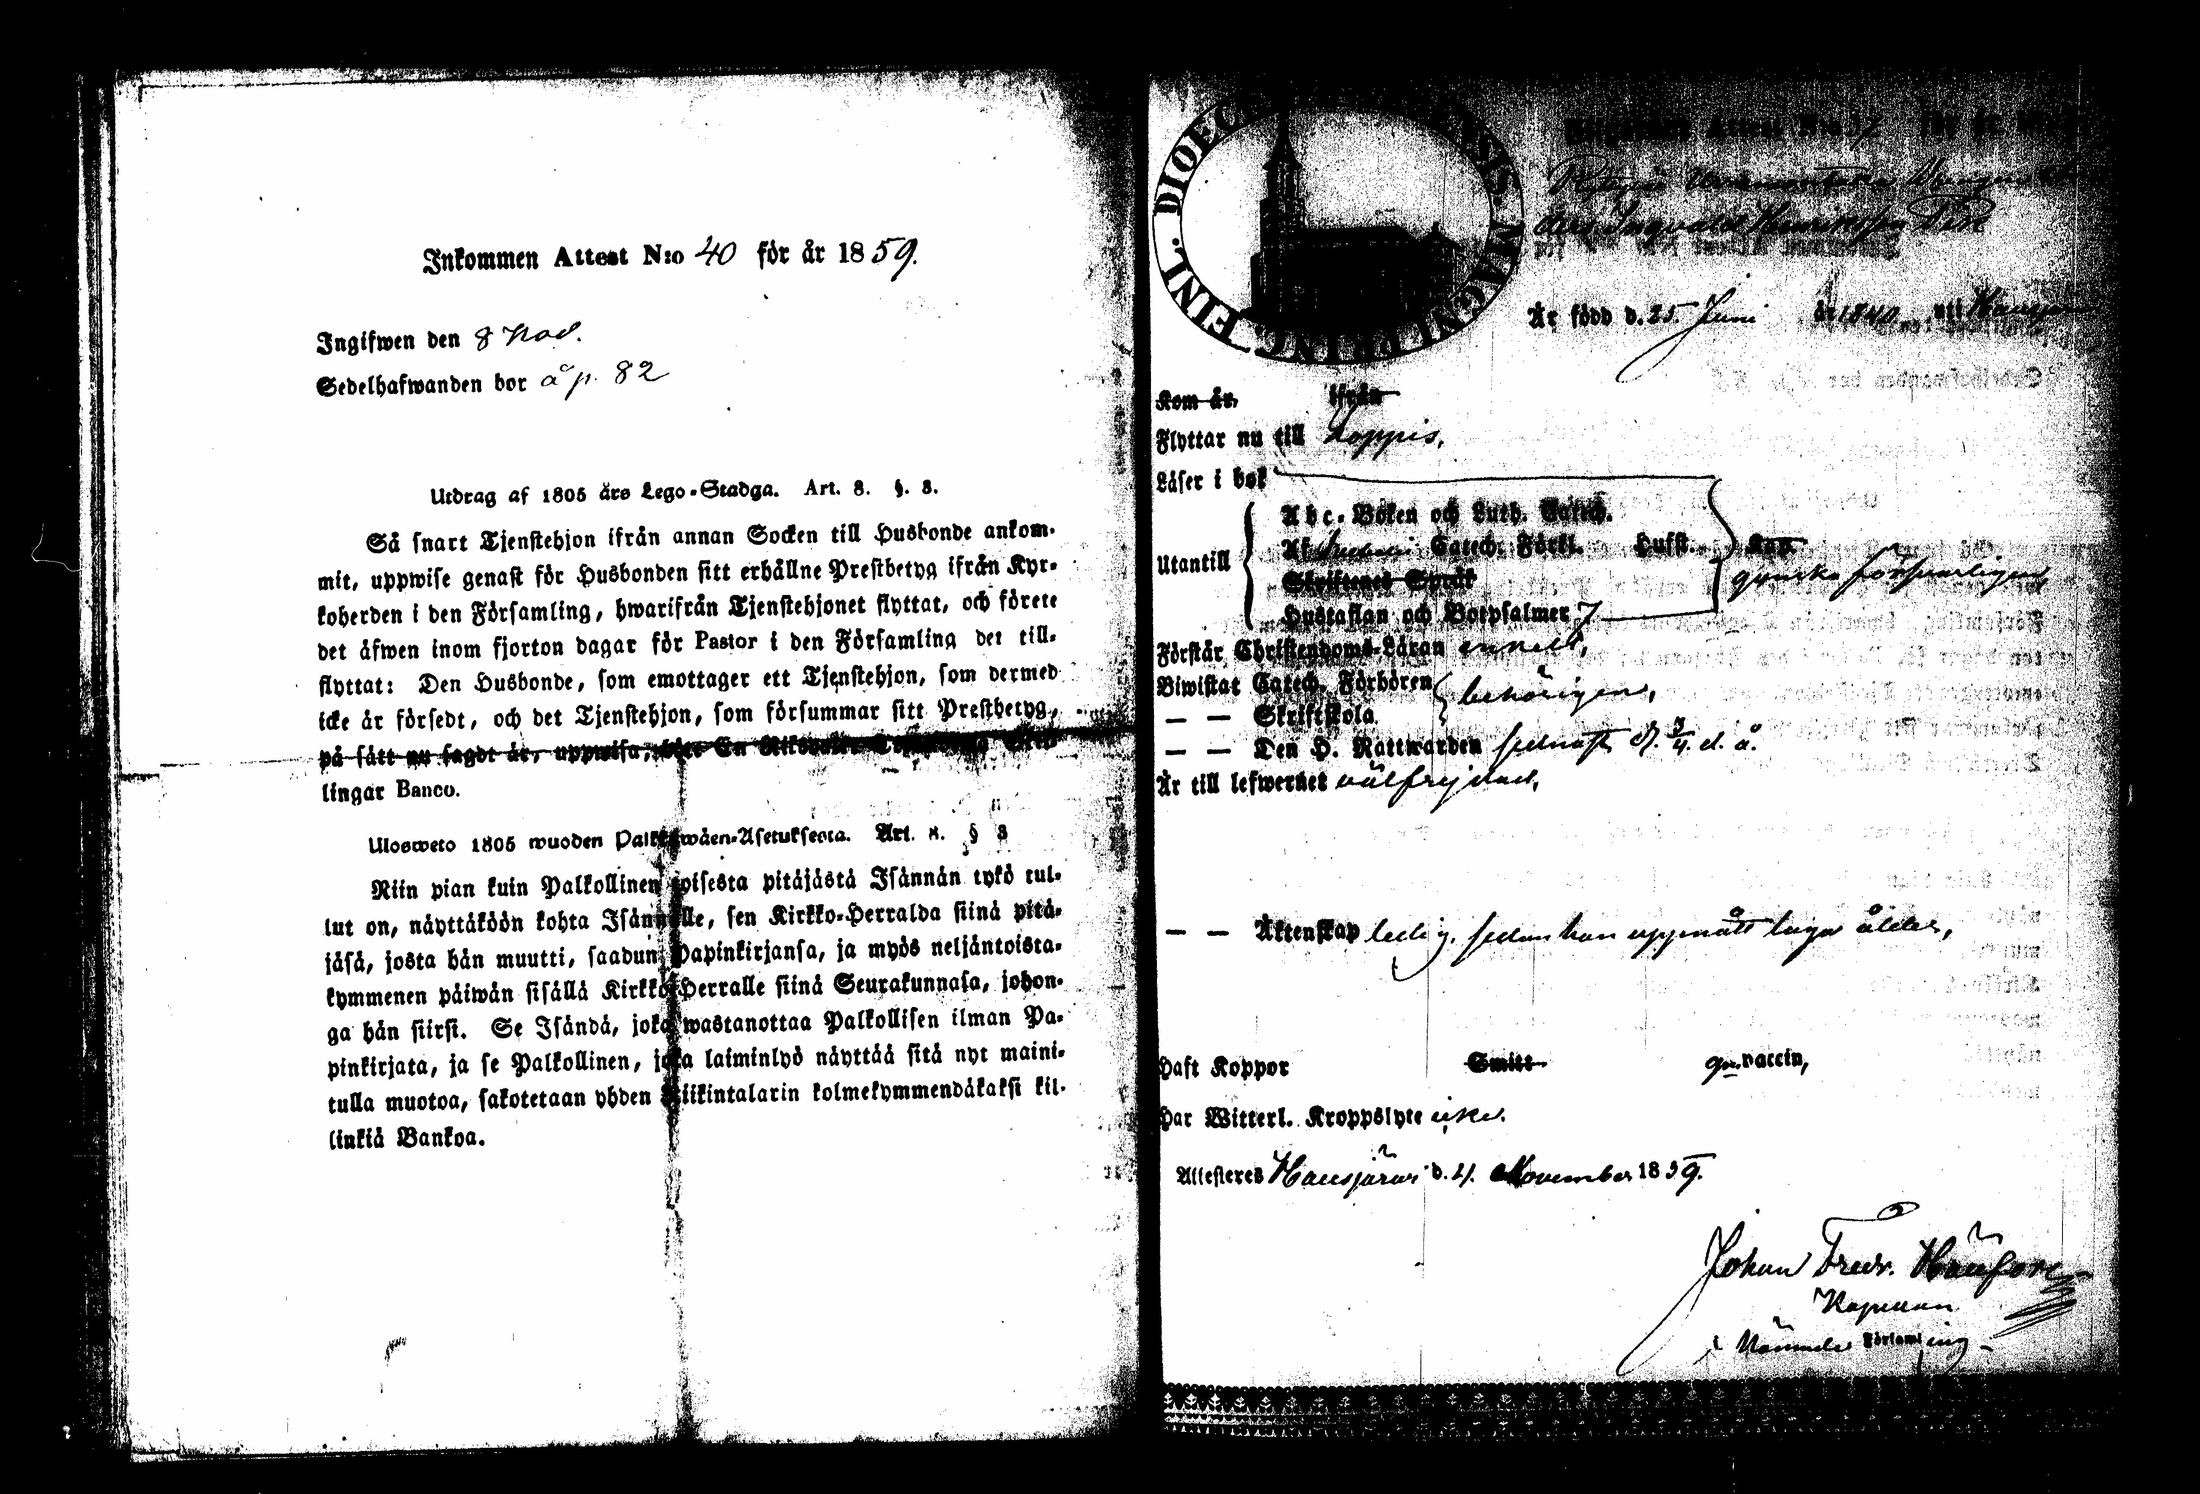 Inkommen Attest N:o 40 för år 1859.
Ingifwen den 8 Nov.
Sedelhafwanden bor å p. 82
Utdrag af 1805 års Lego-Stadga. Art. 8. §. 3.
Så snart Tjenstehjon ifrån annan Socken till Husbonde ankom-
mit, uppwise genast för Husbonden sitt erhållne Prestbetyg ifrån Kyr-
koherden i den Församling, hwarifrån Tjenstehjonet flyttat, och förete
det äfwen inom fjorton dagar för Pastor i den Församling det till-
flyttat: Den Husbonde, som emottager ett Tjenstehjon, som dermed
icke är försedt, och det Tjenstehjon, som försummar sitt Prestbetyg,
på sätt nu sagdt är, uppwisa, böte En Riksdaler
lingar Banco.
Ulosweto 1805 wuoden Palkkawäen-Asetuksesta. Art. 8. § 3
Niin pian kuin Palkollinen toisesta pitäjästä Isännän tykö tul-
lut on, näyttäköön kohta Isännälle, sen Kirkko-Herralda siinä pitä-
jäsä, josta hän muutti, saadun Papinkirjansa, ja myös neljäntoista-
kymmenen päiwän sisällä Kirkko-Herralle siinä Seurakunnasa, johon-
ga hän siirsi. Se Isändä, joka wastanottaa Palkollisen ilman Pa-
pinkirjata, ja se Palkollinen, joka laiminlyö näyttää sitä nyt maini-
tulla muotoa, sakotetaan yhden Riikintalarin kolmekymmendäkaksi kil-
linkiä Bankoa.
Attest N:o 37 för år
Lars Ingvald Henriksson
Är född d. 25 Juni år 1840 uti Hausjärvi
Kom år, ifrån
Flyttar nu till Loppis,
Läser i bok
Utantill
Abc-Boken och Luth. Catech.
Af Svebelii Catech. Förkl. Husst. Kap.
Skriftenes Språk
ganska försvarligen,
Hustaflan och Botpsalmer 7
Förstår Christendoms-Läran enkelt,
Biwistat Catech. Förhören
— — Skriftskola
behörigen,
— — Den H. Nattwarden sednast d. 3/4 d. å.
Är till lefwernet välfrejdad,
— — Äktenskap ledig, sedan han uppnått laga ålder,
Haft Koppor Smitt- gm vaccin,
Har Witterl. Kroppslyte icke.
Attesteres Hausjärvi d. 4. November 1859.
Johan Fredr. Häufore
Kapellan
i Nämnde Församling